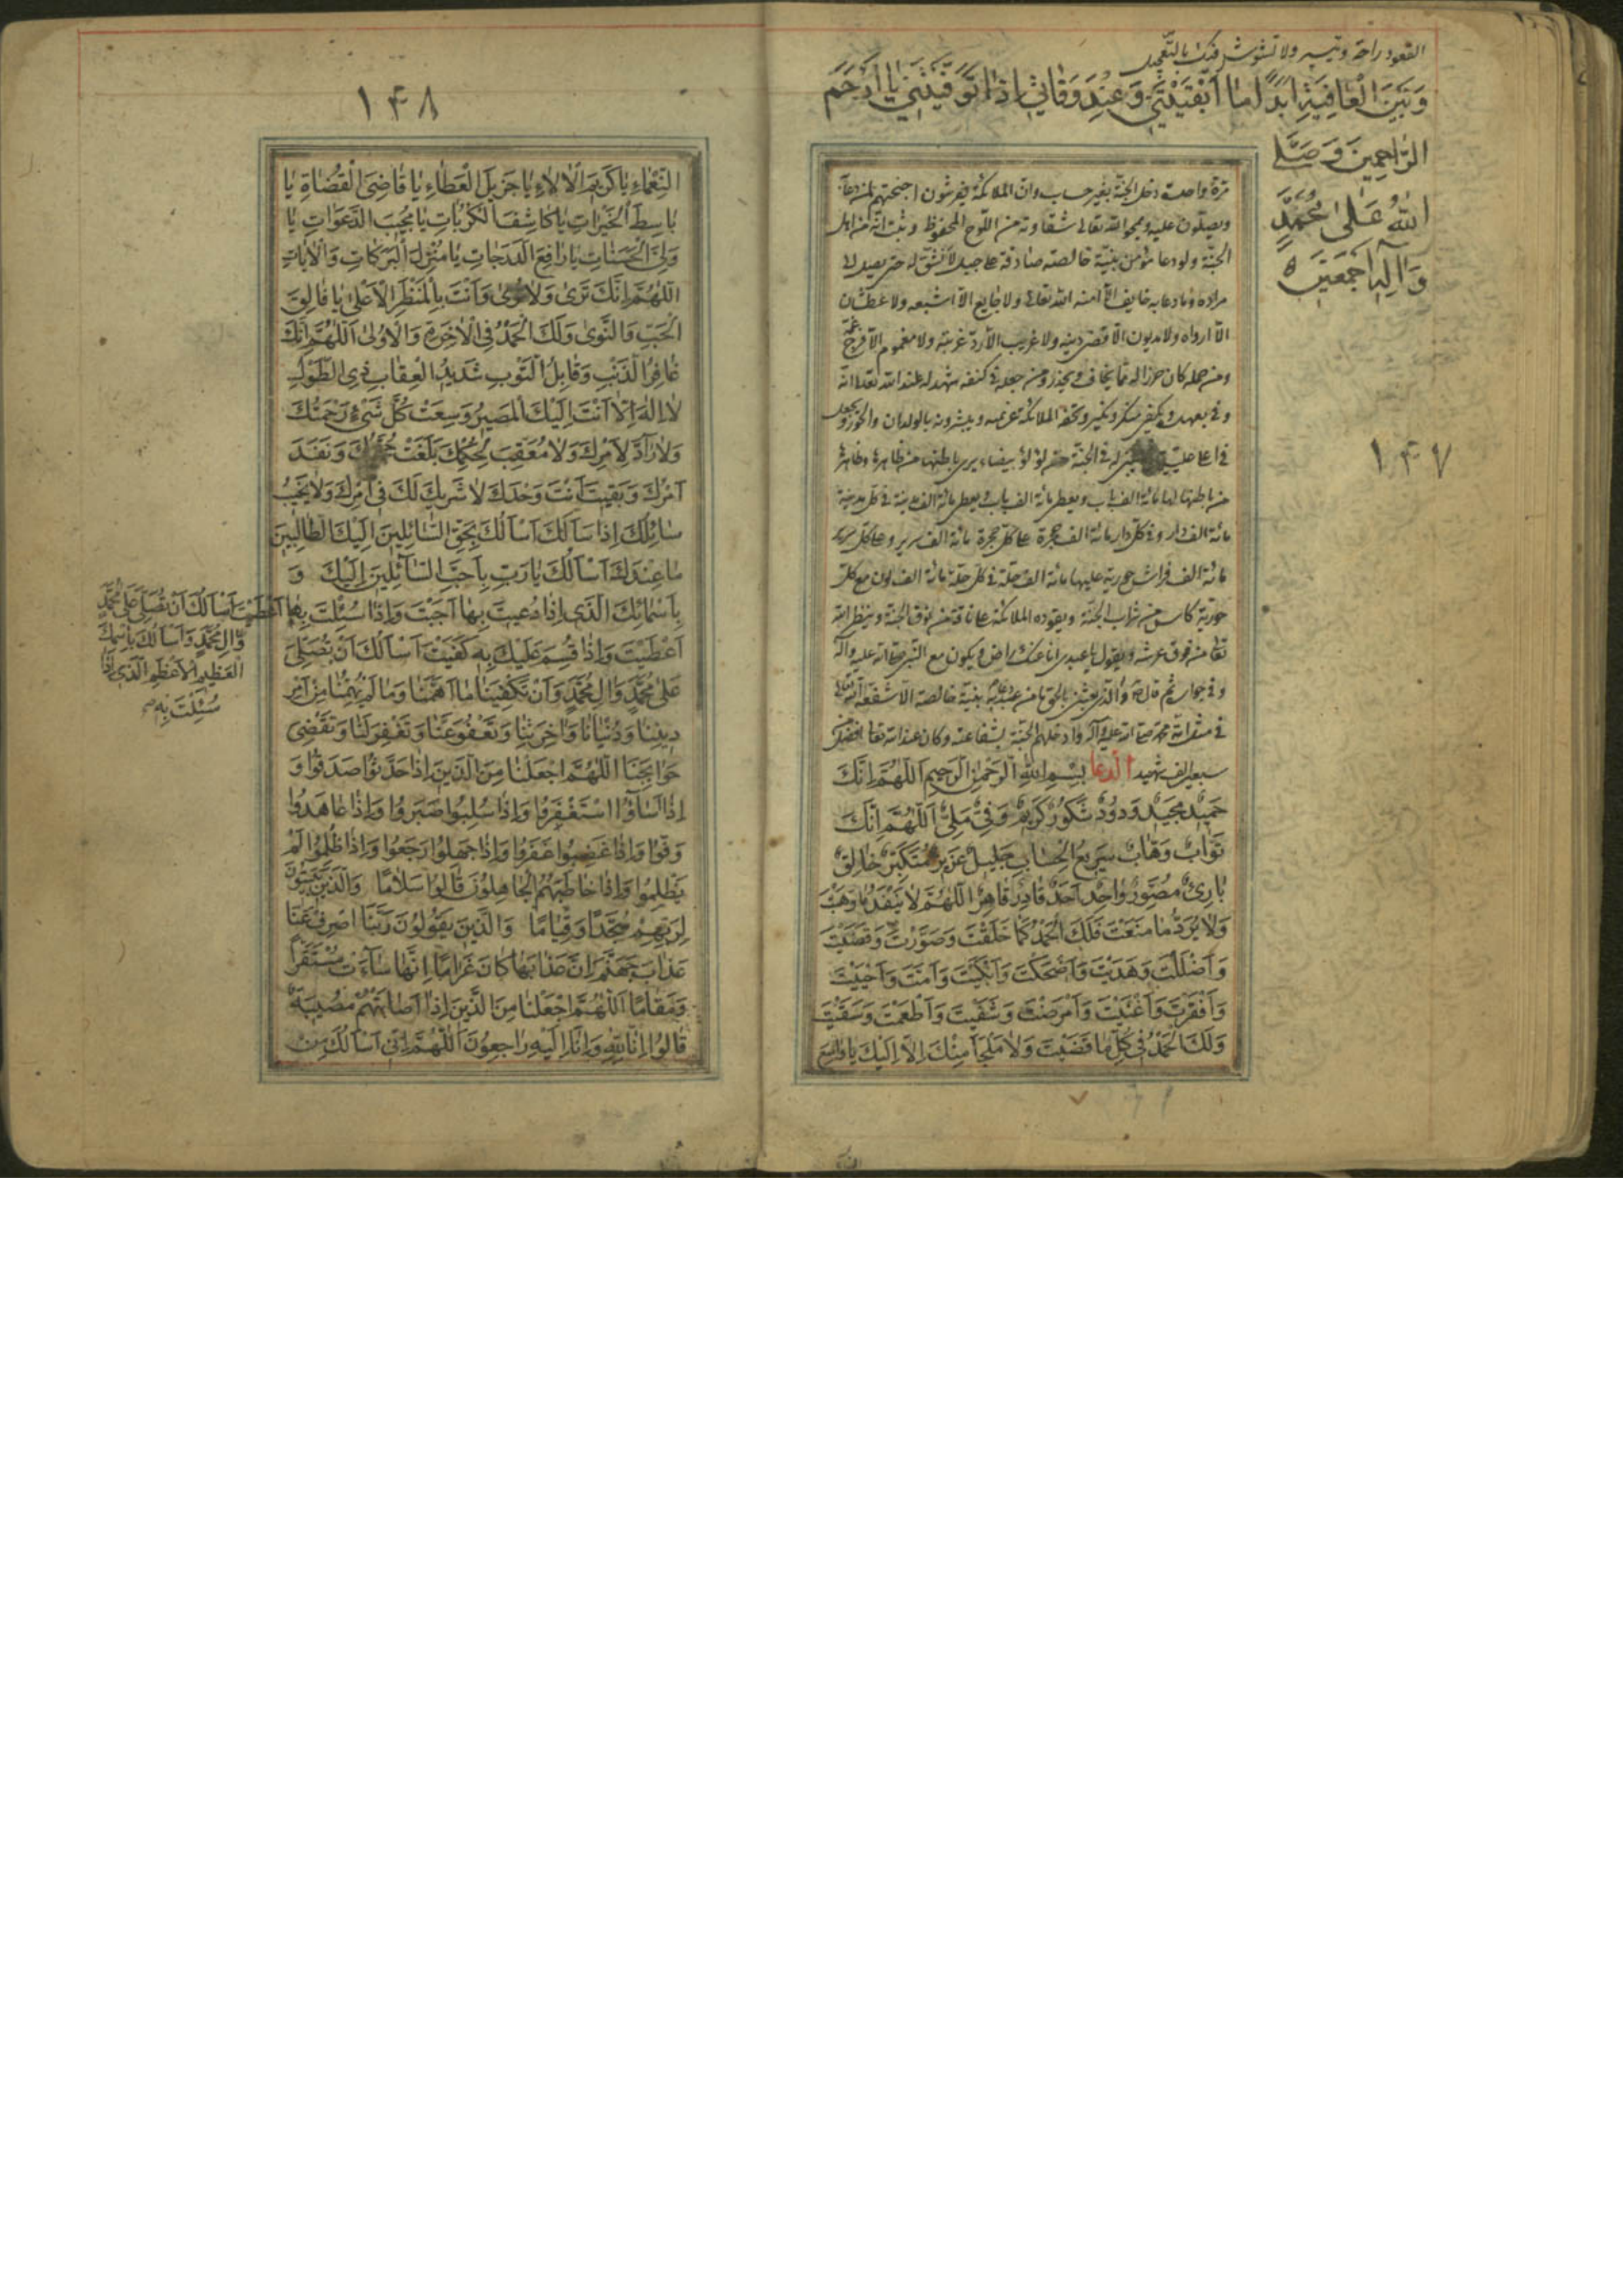 القعود راحة وتيسير ولا تشوش فكرك بالتعجيل
وَبَيْنَ الْعَافِيَةِ اَبَدًا مَا اَبْقَيْتَنِي وَعِنْدَ وَفَاتِي اِذَا تَوَفَّيْتَنِي يَا اَرْحَمَ
الرَّاحِمِينَ وَصَلَّى
اللهُ عَلَى مُحَمَّدٍ
وَآلِهِ اَجْمَعِينَ
۱۴۷
مرة واحدة دخل الجنة بغير حساب وان الملائكة يفرشون اجنحتهم لمن دعا به
ويصلون عليه ويمحو الله تعالى شقاوته من اللوح المحفوظ ويثبت انه من اهل
الجنة ولو دعا مؤمن بنية خالصة صادقة على جبل لانشق له حتى يصل الى
مراده وما دعا به خايف الا آمنه الله تعالى ولا جايع الا اشبعه ولا عطشان
الا ارواه ولا مديون الا قضى دينه ولا غريب الا رد غربته ولا مغموم الا فرج غمه
ومن حمله كان حرزا له مما يخاف ويحذر ومن جعله في كفنه شهد له عند الله تعالى انه
وفى بعهده ويكفى منكر ونكير وتحفه الملائكة عن يمينه ويبشرونه بالولدان والحور ويجعل
في اعلى عليين له في الجنة من لؤلؤ بيضاء يرى باطنها من ظاهرها وظاهرها
من باطنها لها مائة الف باب ويعطى مائة الف باب ويعطى مائة الف مدينة في كل مدينة
مائة الف دار وفي كل دار مائة الف حجرة على كل حجرة مائة الف سرير وعلى كل سرير
مائة الف فراش حورية عليها مائة الف حلة في كل حلة مائة الف لون مع كل
حورية كاس من شراب الجنة ويقوده الملائكة على ناقة من نوق الجنة وينظر الله
تعالى من فوق عرشه ويقول يا عبدي انا عنك راض ويكون مع النبي صلى الله عليه وآله
وفي جواره ثم قال ص والذي بعثني بالحق ما من عبد دعا به بنية خالصة الا شفعه الله تعالى
في امة محمد صلى الله عليه وآله وادخلهم الجنة بشفاعته وكان عند الله تعالى افضل من
سبعين الف شهيد الدعا بِسْمِ اللهِ الرَّحْمٰنِ الرَّحِيمِ اَللّٰهُمَّ اِنَّكَ
حَمِيدٌ مَجِيدٌ وَدُودٌ شَكُورٌ كَرِيمٌ وَفِيٌّ مَلِيٌّ اَللّٰهُمَّ اِنَّكَ
تَوَّابٌ وَهَّابٌ سَرِيعُ الْحِسَابِ جَلِيلٌ عَزِيزٌ مُتَكَبِّرٌ خَالِقٌ
بَارِئٌ مُصَوِّرٌ وَاحِدٌ اَحَدٌ قَادِرٌ قَاهِرٌ اَللّٰهُمَّ لَا يَنْفَدُ مَا وَهَبْتَ
وَلَا يُرَدُّ مَا مَنَعْتَ فَلَكَ الْحَمْدُ كَمَا خَلَقْتَ وَصَوَّرْتَ وَقَضَيْتَ
وَاَضْلَلْتَ وَهَدَيْتَ وَاَضْحَكْتَ وَاَبْكَيْتَ وَاَمَتَّ وَاَحْيَيْتَ
وَاَفْقَرْتَ وَاَغْنَيْتَ وَاَمْرَضْتَ وَشَفَيْتَ وَاَطْعَمْتَ وَسَقَيْتَ
وَلَكَ الْحَمْدُ فِي كُلِّ مَا قَضَيْتَ وَلَا مَلْجَأَ مِنْكَ اِلَّا اِلَيْكَ يَا وَاسِعَ
۱۴۸
النَّعْمَاءِ يَا كَرِيمَ الْآلَاءِ يَا جَزِيلَ الْعَطَاءِ يَا قَاضِيَ الْقُضَاةِ يَا
بَاسِطَ الْخَيْرَاتِ يَا كَاشِفَ الْكُرُبَاتِ يَا مُجِيبَ الدَّعَوَاتِ يَا
وَلِيَّ الْحَسَنَاتِ يَا رَافِعَ الدَّرَجَاتِ يَا مُنْزِلَ الْبَرَكَاتِ وَالْآيَاتِ
اَللّٰهُمَّ اِنَّكَ تَرَى وَلَا تُرَى وَاَنْتَ بِالْمَنْظَرِ الْاَعْلَى يَا فَالِقَ
الْحَبِّ وَالنَّوَى وَلَكَ الْحَمْدُ فِي الْآخِرَةِ وَالْاُولَى اَللّٰهُمَّ اِنَّكَ
غَافِرُ الذَّنْبِ وَقَابِلُ التَّوْبِ شَدِيدُ الْعِقَابِ ذِي الطَّوْلِ
لَا اِلٰهَ اِلَّا اَنْتَ اِلَيْكَ الْمَصِيرُ وَسِعَتْ كُلَّ شَيْءٍ رَحْمَتُكَ
وَلَا رَادَّ لِاَمْرِكَ وَلَا مُعَقِّبَ لِحُكْمِكَ بَلَغَتْ حُجَّتُكَ وَنَفَذَ
اَمْرُكَ وَبَقِيتَ اَنْتَ وَحْدَكَ لَا شَرِيكَ لَكَ فِي اَمْرِكَ وَلَا يَخِيبُ
سَائِلُكَ اِذَا سَاَلَكَ اَسْاَلُكَ بِحَقِّ السَّائِلِينَ اِلَيْكَ الطَّالِبِينَ
مَا عِنْدَكَ اَسْاَلُكَ يَا رَبِّ بِاَحَبِّ السَّائِلِينَ اِلَيْكَ وَ
بِاَسْمَائِكَ الَّذِي اِذَا دُعِيتَ بِهَا اَجَبْتَ وَاِذَا سُئِلْتَ بِهَا
اَعْطَيْتَ اَسْاَلُكَ اَنْ تُصَلِّيَ عَلَى مُحَمَّدٍ
وَآلِ مُحَمَّدٍ وَاَسْاَلُكَ بِاسْمِكَ
الْعَظِيمِ الْاَعْظَمِ الَّذِي اِذَا
سُئِلْتَ بِهِ
اَعْطَيْتَ وَاِذَا قُسِمَ عَلَيْكَ بِهِ كَفَيْتَ اَسْاَلُكَ اَنْ تُصَلِّيَ
عَلَى مُحَمَّدٍ وَآلِ مُحَمَّدٍ وَاَنْ تَكْفِيَنَا مَا اَهَمَّنَا وَمَا لَمْ يُهِمَّنَا مِنْ اَمْرِ
دِينِنَا وَدُنْيَانَا وَآخِرَتِنَا وَتَعْفُوَ عَنَّا وَتَغْفِرَ لَنَا وَتَقْضِيَ
حَوَائِجَنَا اَللّٰهُمَّ اجْعَلْنَا مِنَ الَّذِينَ اِذَا حَدَّثُوا صَدَقُوا وَ
اِذَا اَسَاؤُا اسْتَغْفَرُوا وَاِذَا سُلِبُوا صَبَرُوا وَاِذَا عَاهَدُوا
وَفَوْا وَاِذَا غَضِبُوا غَفَرُوا وَاِذَا جَهِلُوا رَجَعُوا وَاِذَا ظُلِمُوا لَمْ
يَظْلِمُوا وَاِذَا خَاطَبَهُمُ الْجَاهِلُونَ قَالُوا سَلَامًا وَالَّذِينَ يَبِيتُونَ
لِرَبِّهِمْ سُجَّدًا وَقِيَامًا وَالَّذِينَ يَقُولُونَ رَبَّنَا اصْرِفْ عَنَّا
عَذَابَ جَهَنَّمَ اِنَّ عَذَابَهَا كَانَ غَرَامًا اِنَّهَا سَاءَتْ مُسْتَقَرًّا
وَمُقَامًا اَللّٰهُمَّ اجْعَلْنَا مِنَ الَّذِينَ اِذَا اَصَابَتْهُمْ مُصِيبَةٌ
قَالُوا اِنَّا لِلّٰهِ وَاِنَّا اِلَيْهِ رَاجِعُونَ اَللّٰهُمَّ اِنِّي اَسْاَلُكَ مِنْ